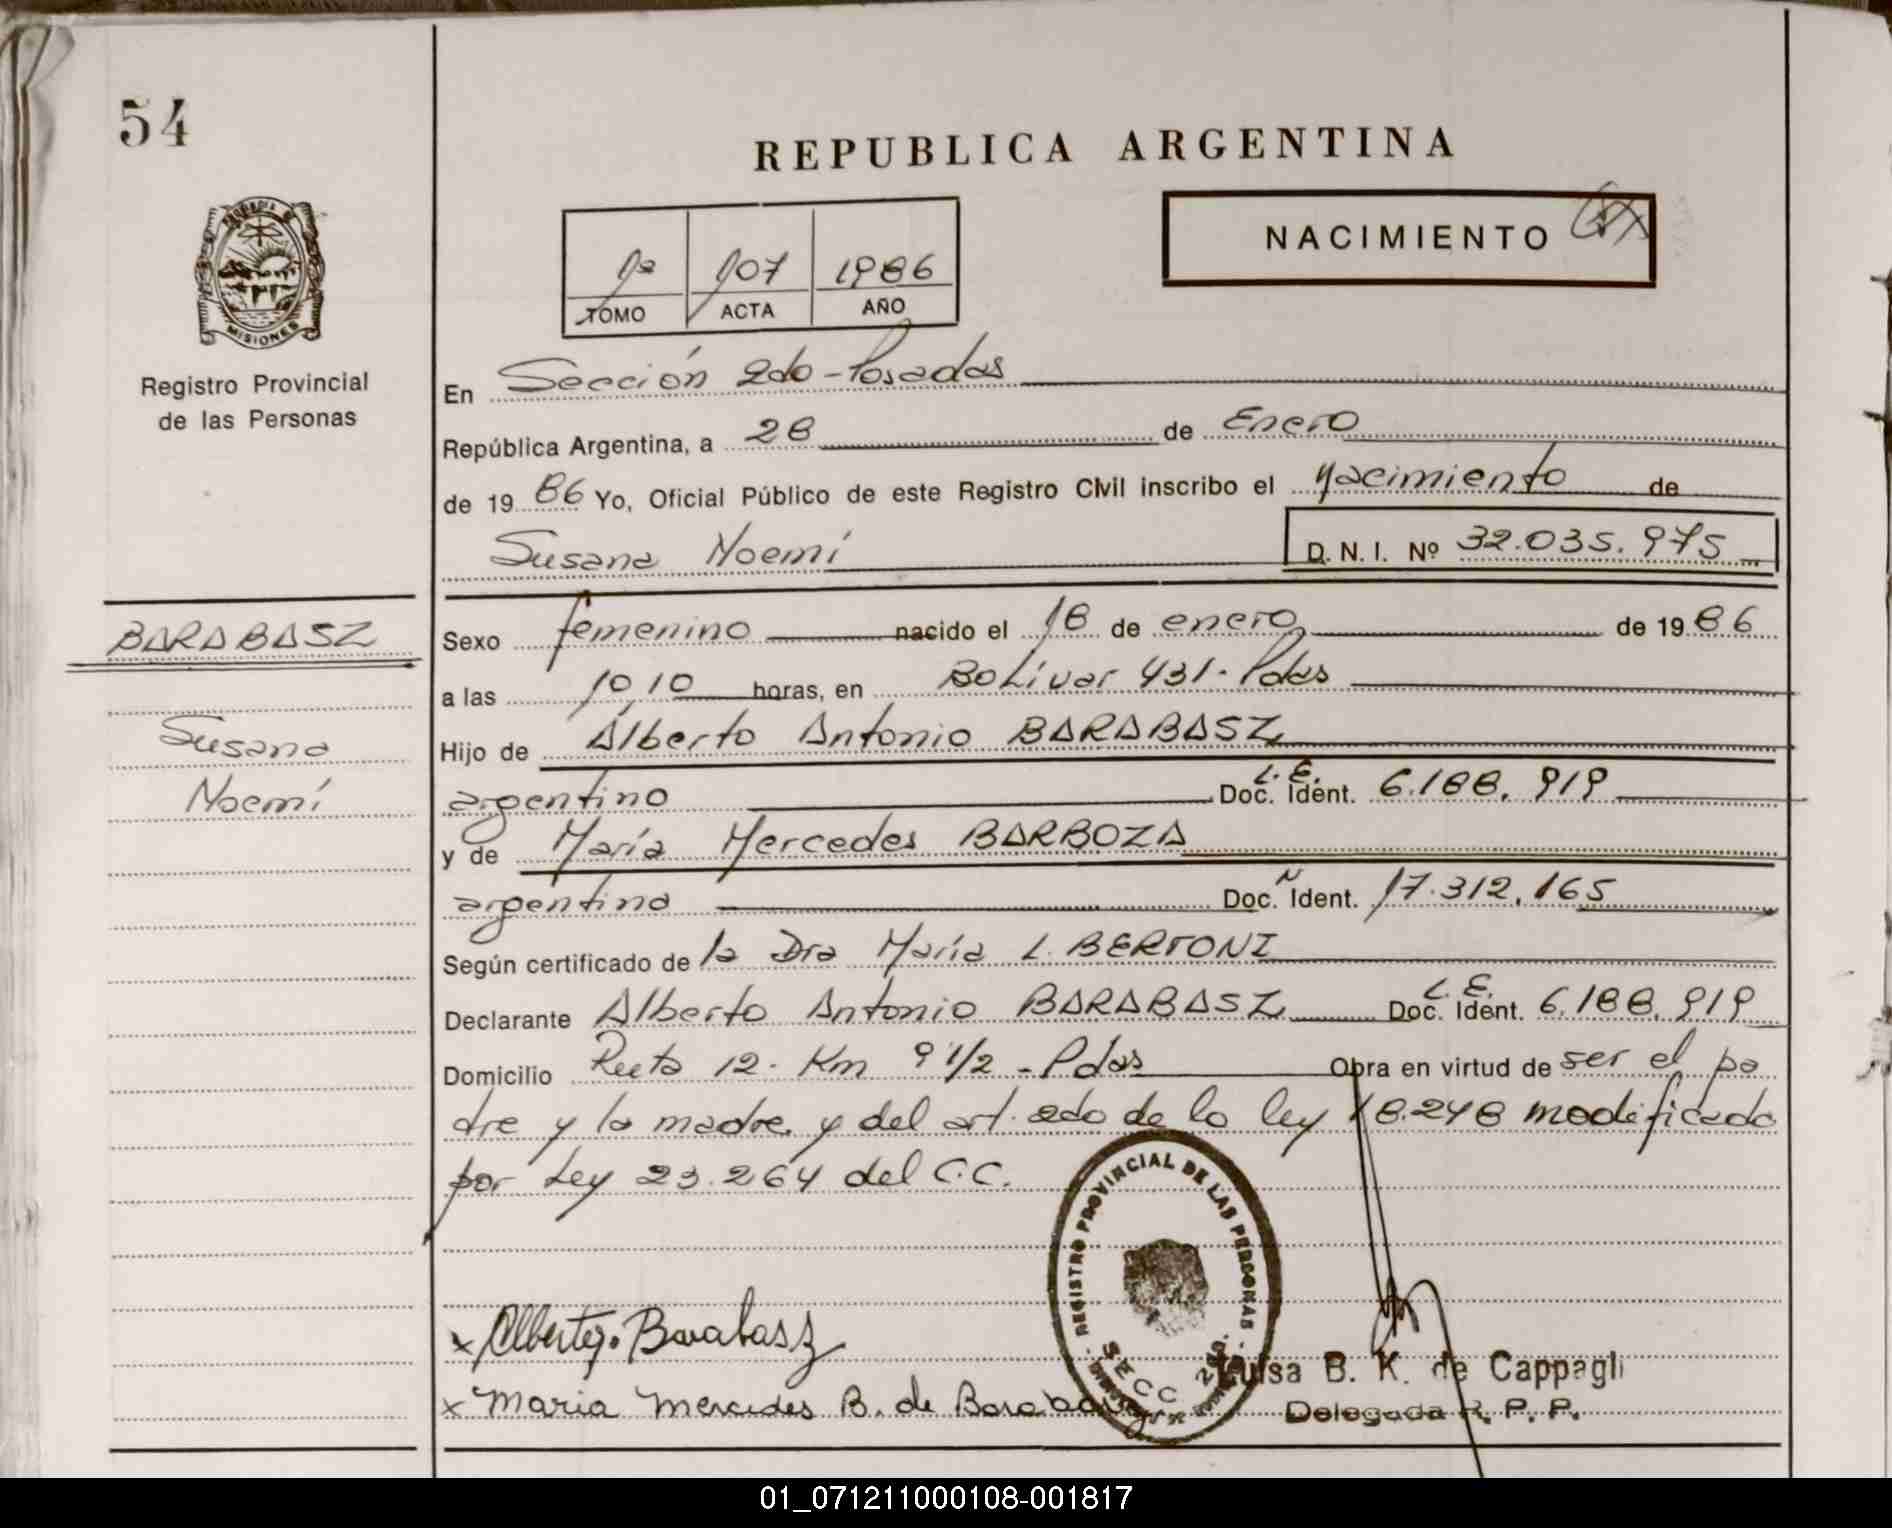 54
REPUBLICA ARGENTINA
PROVINCIA DE
MISIONES
Registro Provincial
de las Personas
1º 107 1986
TOMO ACTA AÑO
NACIMIENTO
En Sección 2do - Posadas
República Argentina, a 28 de Enero
de 1986 Yo, Oficial Público de este Registro Civil inscribo el Nacimiento de
Susana Noemí D. N. I. Nº 32.035.975
BARABASZ
Susana
Noemí
Sexo femenino nacido el 18 de enero de 1986
a las 10,10 horas, en Bolívar 431 - Pdas
Hijo de Alberto Antonio BARABASZ
argentino L.E. Doc. Ident. 6.188.919
y de María Mercedes BARBOZA
argentina Doc. N Ident. 17.312.165
Según certificado de la Dra María L. BERTONI
Declarante Alberto Antonio BARABASZ L.E. Doc. Ident. 6.188.919
Domicilio Ruta 12 - Km 9 1/2 - Pdas Obra en virtud de ser el pa
dre y la madre y del art. 2do de la ley 18.248 modificada
por Ley 23.264 del C.C.
REGISTRO PROVINCIAL DE LAS PERSONAS
SECC. 2da.
x Alberto A. Barabasz
x Maria Mercedes B. de Barabasz
Luisa B. K. de Cappagli
Delegada R. P. P.
01_071211000108-001817